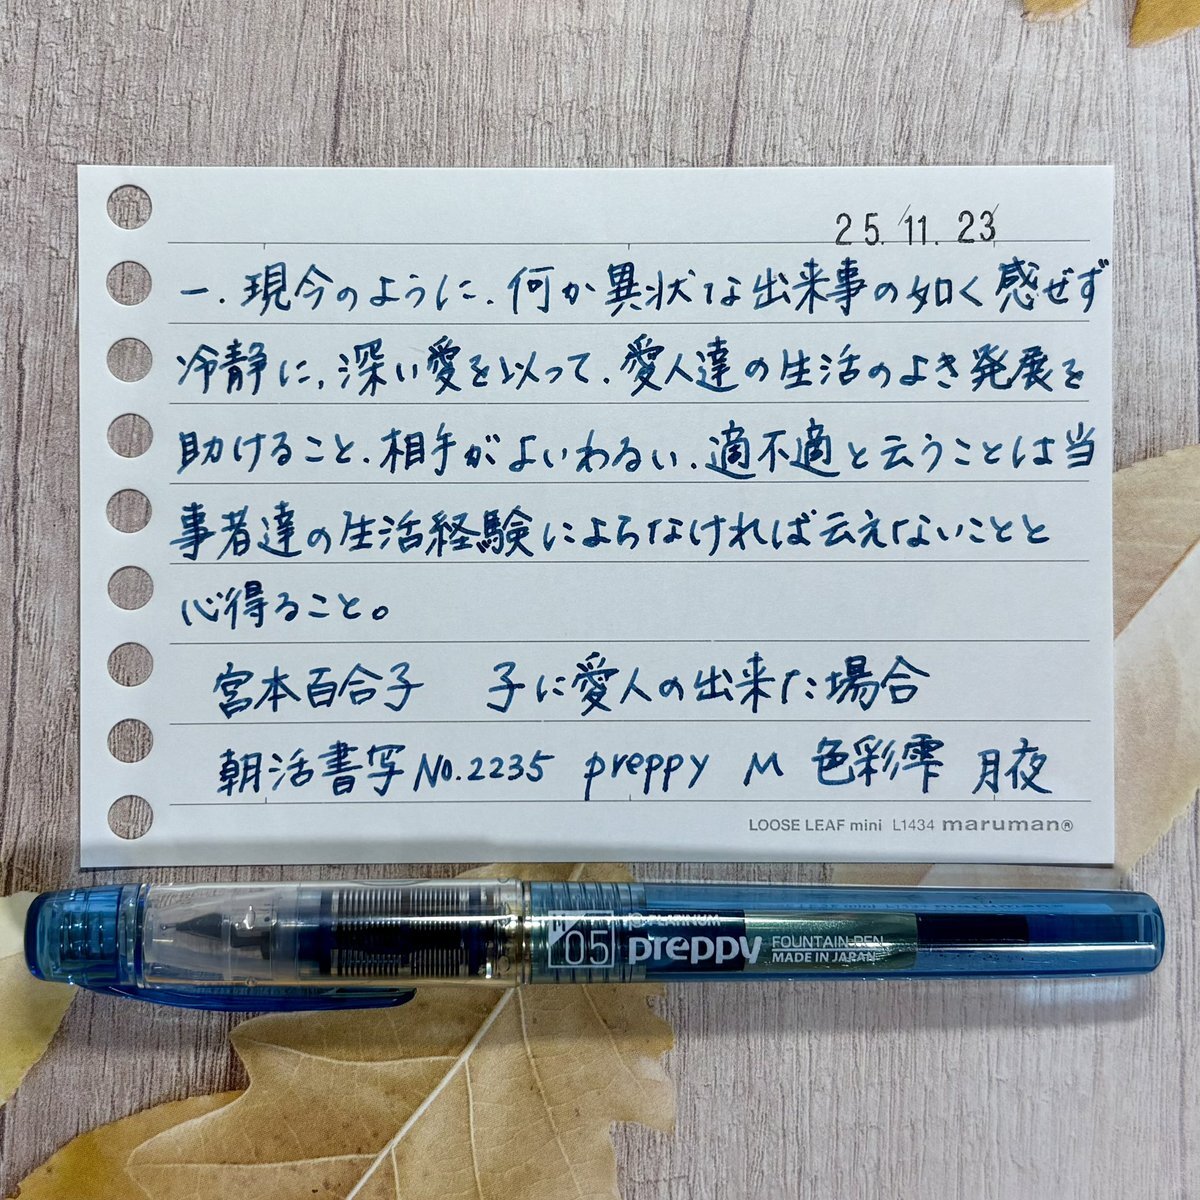 25.11.23
一.現今のように.何か異状な出来事の如く感ぜず
冷静に,深い愛を以って.愛人達の生活のよき発展を
助けること.相手がよいわるい.適不適と云うことは当
事者達の生活経験によらなければ云えないことと
心得ること。
宮本百合子 子に愛人の出来た場合
朝活書写No.2235 preppy M 色彩雫 月夜
LOOSE LEAF mini L1434 maruman®
M 05
PLATINUM
preppy
FOUNTAIN PEN
MADE IN JAPAN